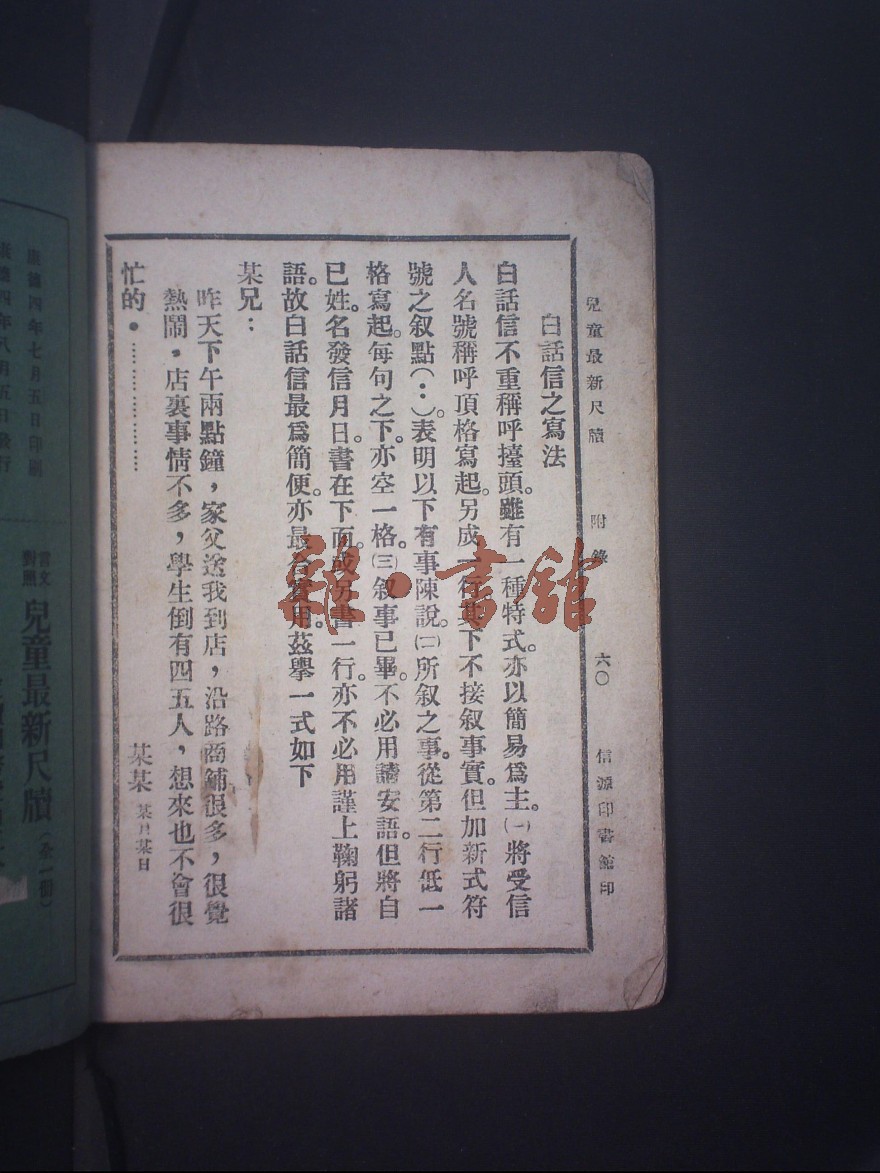 兒童最新尺牘 附錄 六〇 信源印書館印
白話信之寫法
白話信不重稱呼擡頭。雖有一種特式。亦以簡易爲主。㈠將受信
人名號稱呼頂格寫起。另成一行其下不接叙事實。但加新式符
號之叙點(：)。表明以下有事陳說。㈡所叙之事。從第二行低一
格寫起。每句之下。亦空一格。㈢叙事已畢。不必用請安語。但將自
已姓名。發信月日。書在下面。或另書一行。亦不必用謹上鞠躬諸
語。故白話信最爲簡便。亦最合實用。茲擧一式如下
某兄：
昨天下午兩點鐘，家父送我到店，沿路商鋪很多，很覺
熱鬧。店裏事情不多，學生倒有四五人，想來也不會很
忙的。………………
某某 某月某日
雜·書館
康德四年七月五日印刷
康德四年八月五日發行
言文對照 兒童最新尺牘（全一冊）